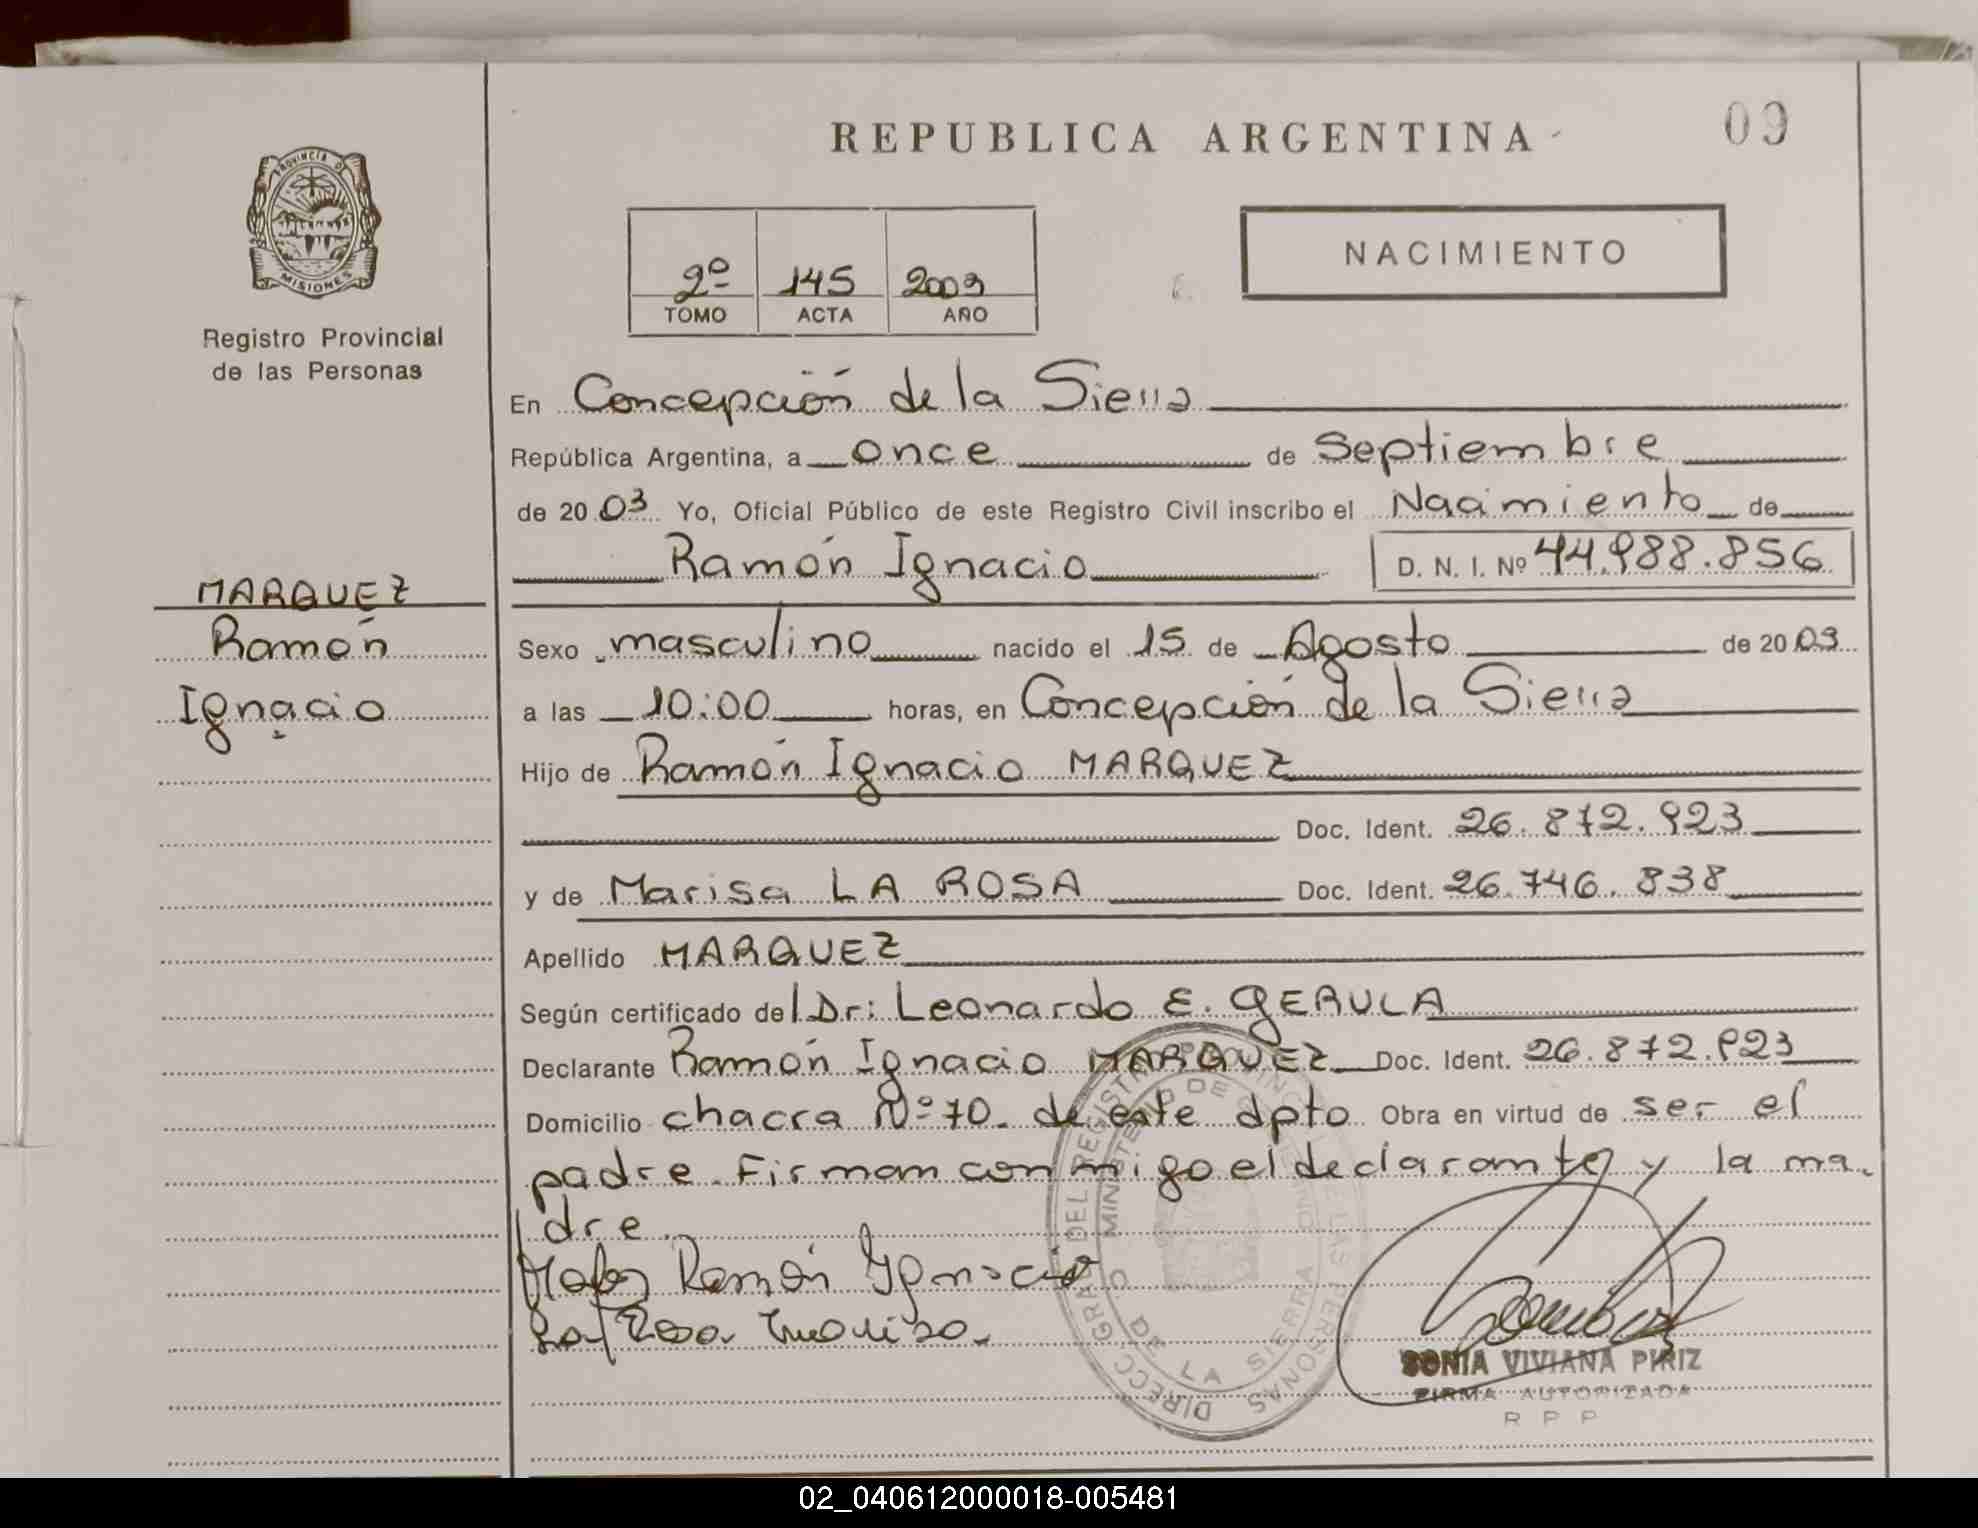 REPUBLICA ARGENTINA
09
PROVINCIA DE
MISIONES
Registro Provincial
de las Personas
2º 145 2003
TOMO ACTA AÑO
NACIMIENTO
En Concepción de la Sierra
República Argentina, a once de Septiembre
de 2003 Yo, Oficial Público de este Registro Civil inscribo el Nacimiento de
Ramón Ignacio D. N. I. Nº 44.988.856
MARQUEZ
Ramón
Ignacio
Sexo masculino nacido el 15 de Agosto de 2003
a las 10:00 horas, en Concepción de la Sierra
Hijo de Ramón Ignacio MARQUEZ
Doc. Ident. 26.872.923
y de Marisa LA ROSA Doc. Ident. 26.746.838
Apellido MARQUEZ
Según certificado del Dr: Leonardo E. GERULA
Declarante Ramón Ignacio MARQUEZ Doc. Ident. 26.872.923
Domicilio chacra Nº 70. de este dpto Obra en virtud de ser el
padre. Firman conmigo el declarante y la ma-
dre.
Ramón Ignacio
La Rosa Marisa.
DIRECC GRAL DEL REGISTRO PROVINCIAL DE LAS PERSONAS
MINISTERIO DE GOBIERNO
DE LA SIERRA
SONIA VIVIANA PIRIZ
FIRMA AUTORIZADA
R P P
02_040612000018-005481